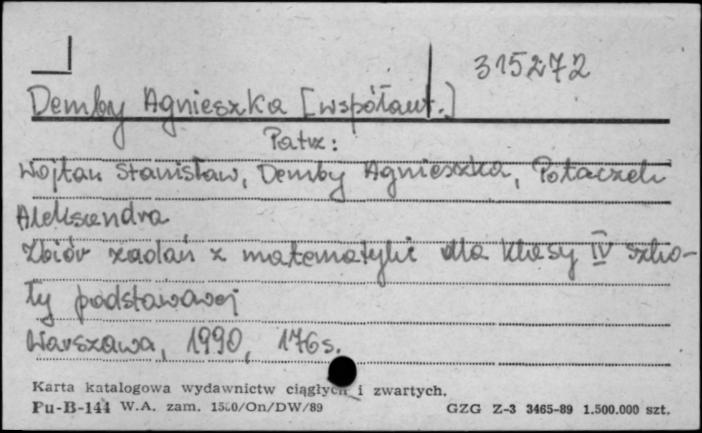 315272
Demby Agnieszka [współaut.]
Patrz:
Wojtan Stanisław, Demby Agnieszka, Potaczek
Aleksandra
Zbiór zadań z matematyki dla klasy IV szko-
ły podstawowej
Warszawa, 1990, 176s.
Karta katalogowa wydawnictw ciągłych i zwartych.
Pu-B-144 W.A. zam. /On/DW/89 GZG Z-3 3465-89 1.500.000 szt.